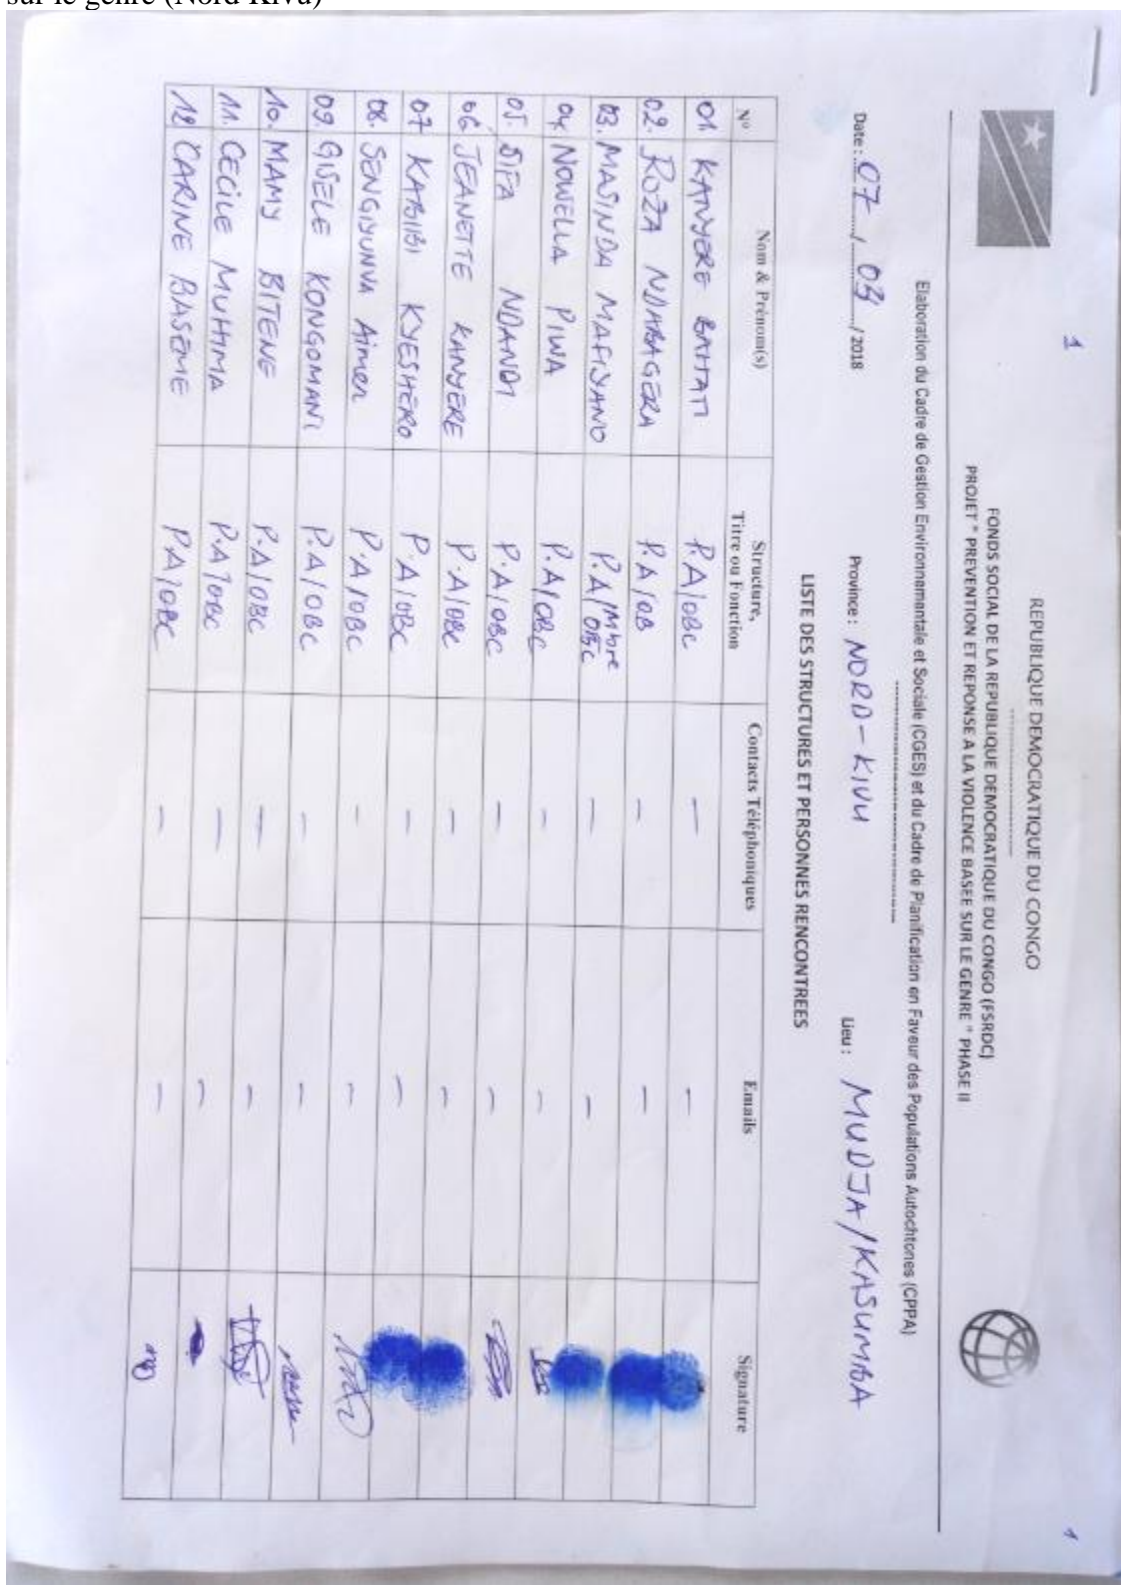 sur le genre (Nord Kivu)
1
REPUBLIQUE DEMOCRATIQUE DU CONGO
FONDS SOCIAL DE LA REPUBLIQUE DEMOCRATIQUE DU CONGO (FSRDC)
PROJET " PREVENTION ET REPONSE A LA VIOLENCE BASEE SUR LE GENRE " PHASE II
Elaboration du Cadre de Gestion Environnementale et Sociale (CGES) et du Cadre de Planification en Faveur des Populations Autochtones (CPPA)
Date : 07 / 03 / 2018 Province : NORD-KIVU Lieu : MUDJA/KASUMBA
LISTE DES STRUCTURES ET PERSONNES RENCONTREES
N° Nom & Prénom(s) Structure, Titre ou Fonction Contacts Téléphoniques Emails Signature
01. KANYERE BAHATI P.A/OBC — —
02. ROZA NDABAGERA P.A/OB — —
03. MASINDA MAFIYANO P.A/Mbre OBC — —
04. NOWELLA PIWA P.A/OBC — —
05. SIFA NDANDI P.A/OBC — —
06. JEANETTE KANYERE P.A/OBC — —
07. KABIIBI KYESHERO P.A/OBC — —
08. SENGIYUNVA Aimen P.A/OBC — —
09. GISELE KONGOMANI P.A/OBC — —
10. MAMY BITENG P.A/OBC — —
11. CECILE MUHIMA P.A/OBC — —
12 CARINE BASEME P.A/OBC — —